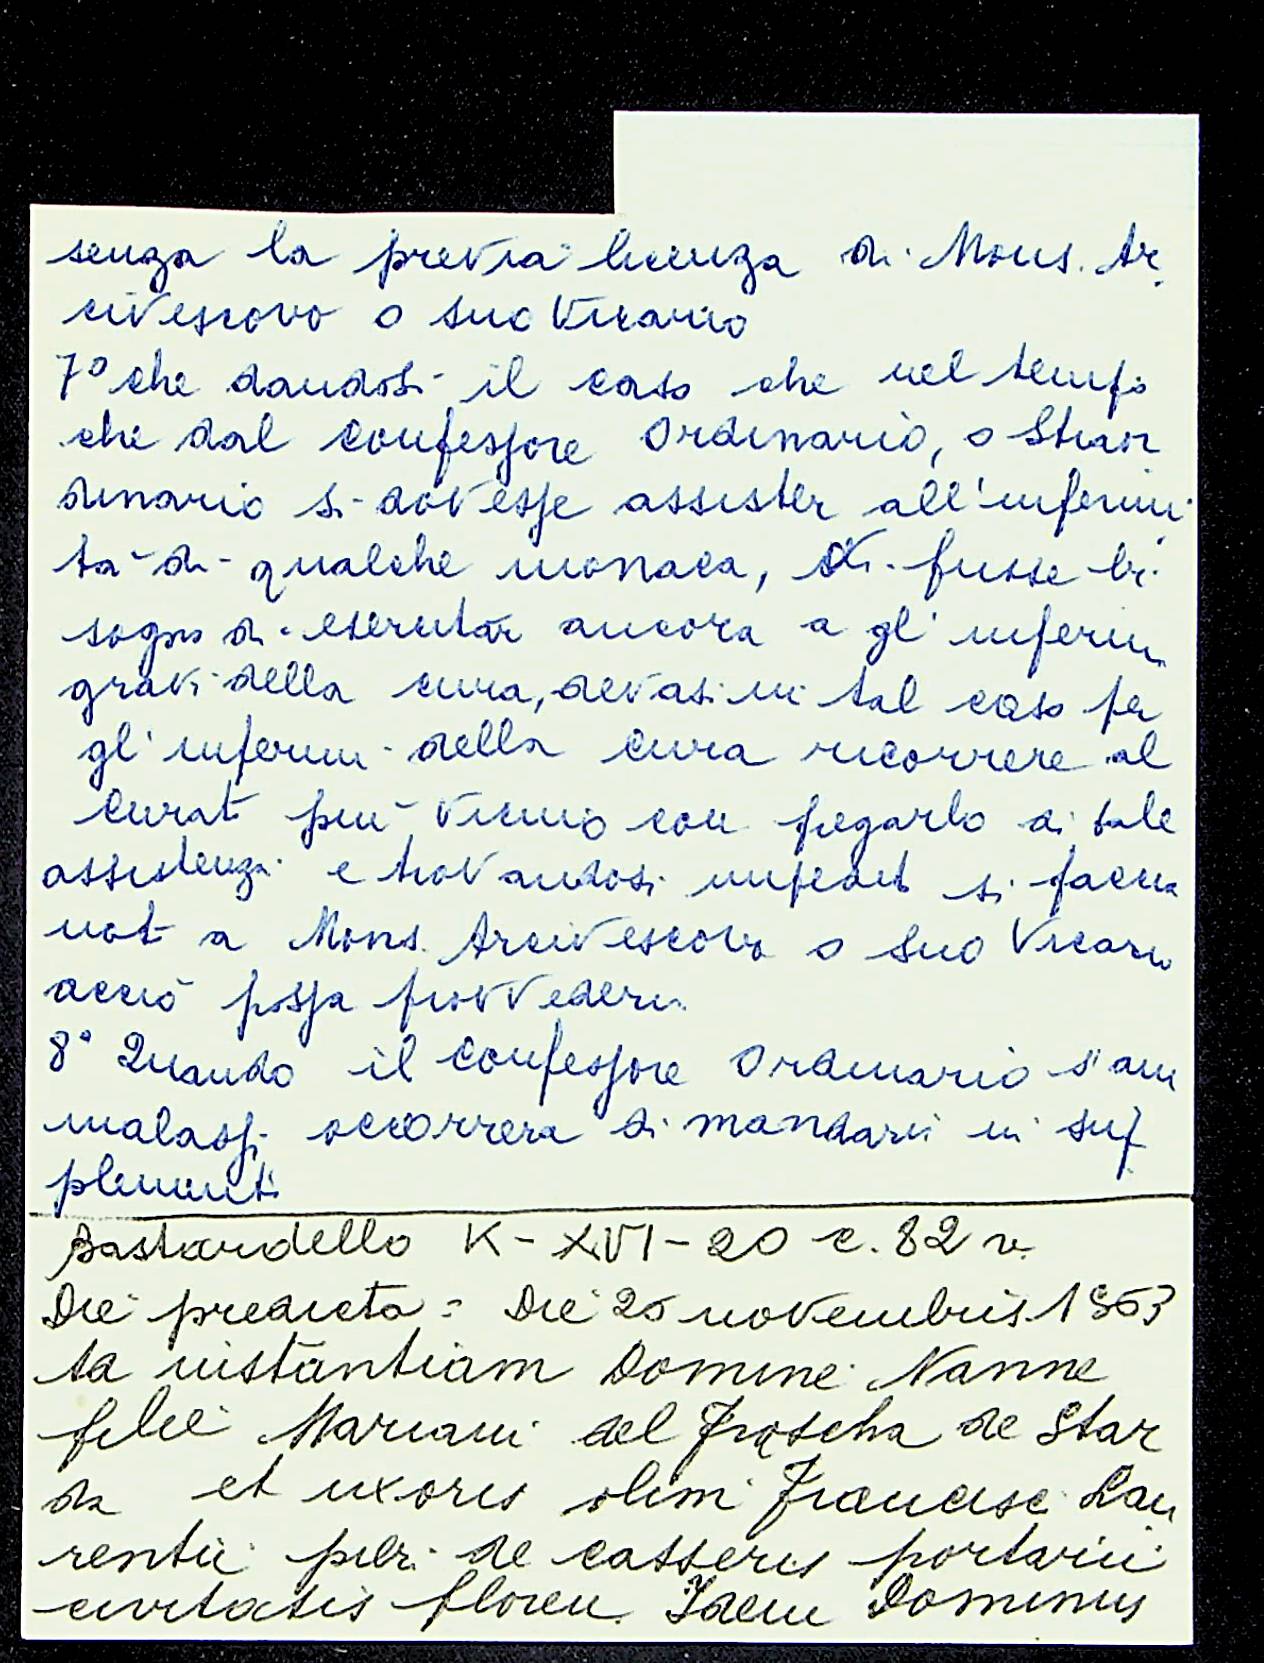 senza la previa licenza di Mons. Ar
civescovo o suo Vicario
7° che dandosi il caso che nel tempo
che dal Confessore Ordinario, o Straor
dinario si dovesse assister all'infermi
tà di qualche monaca, vi fusse bi
sogno di esercitar ancora a gl'infermi
gravi della cura, devasi in tal caso per
gl'infermi della cura ricorrere al
Curat più vicino con pregarlo di tale
assistenza e trovandosi impedit si faccia
not a Mons. Arcivescovo o suo Vicario
acciò possa provvedervi
8° Quando il Confessore Ordinario s'am
malassi occorrerà di mandarvi in sup
plimenti
Bastardello K-XVI-20 c. 82 v.
Die predicta = Die 25 novembris 1563
ta instantiam Domine Nanne
filie Mariani del de Star
da et uxoris olim Francisc Lau
rentii de casseris portarii
civitatis floren. Idem Dominus